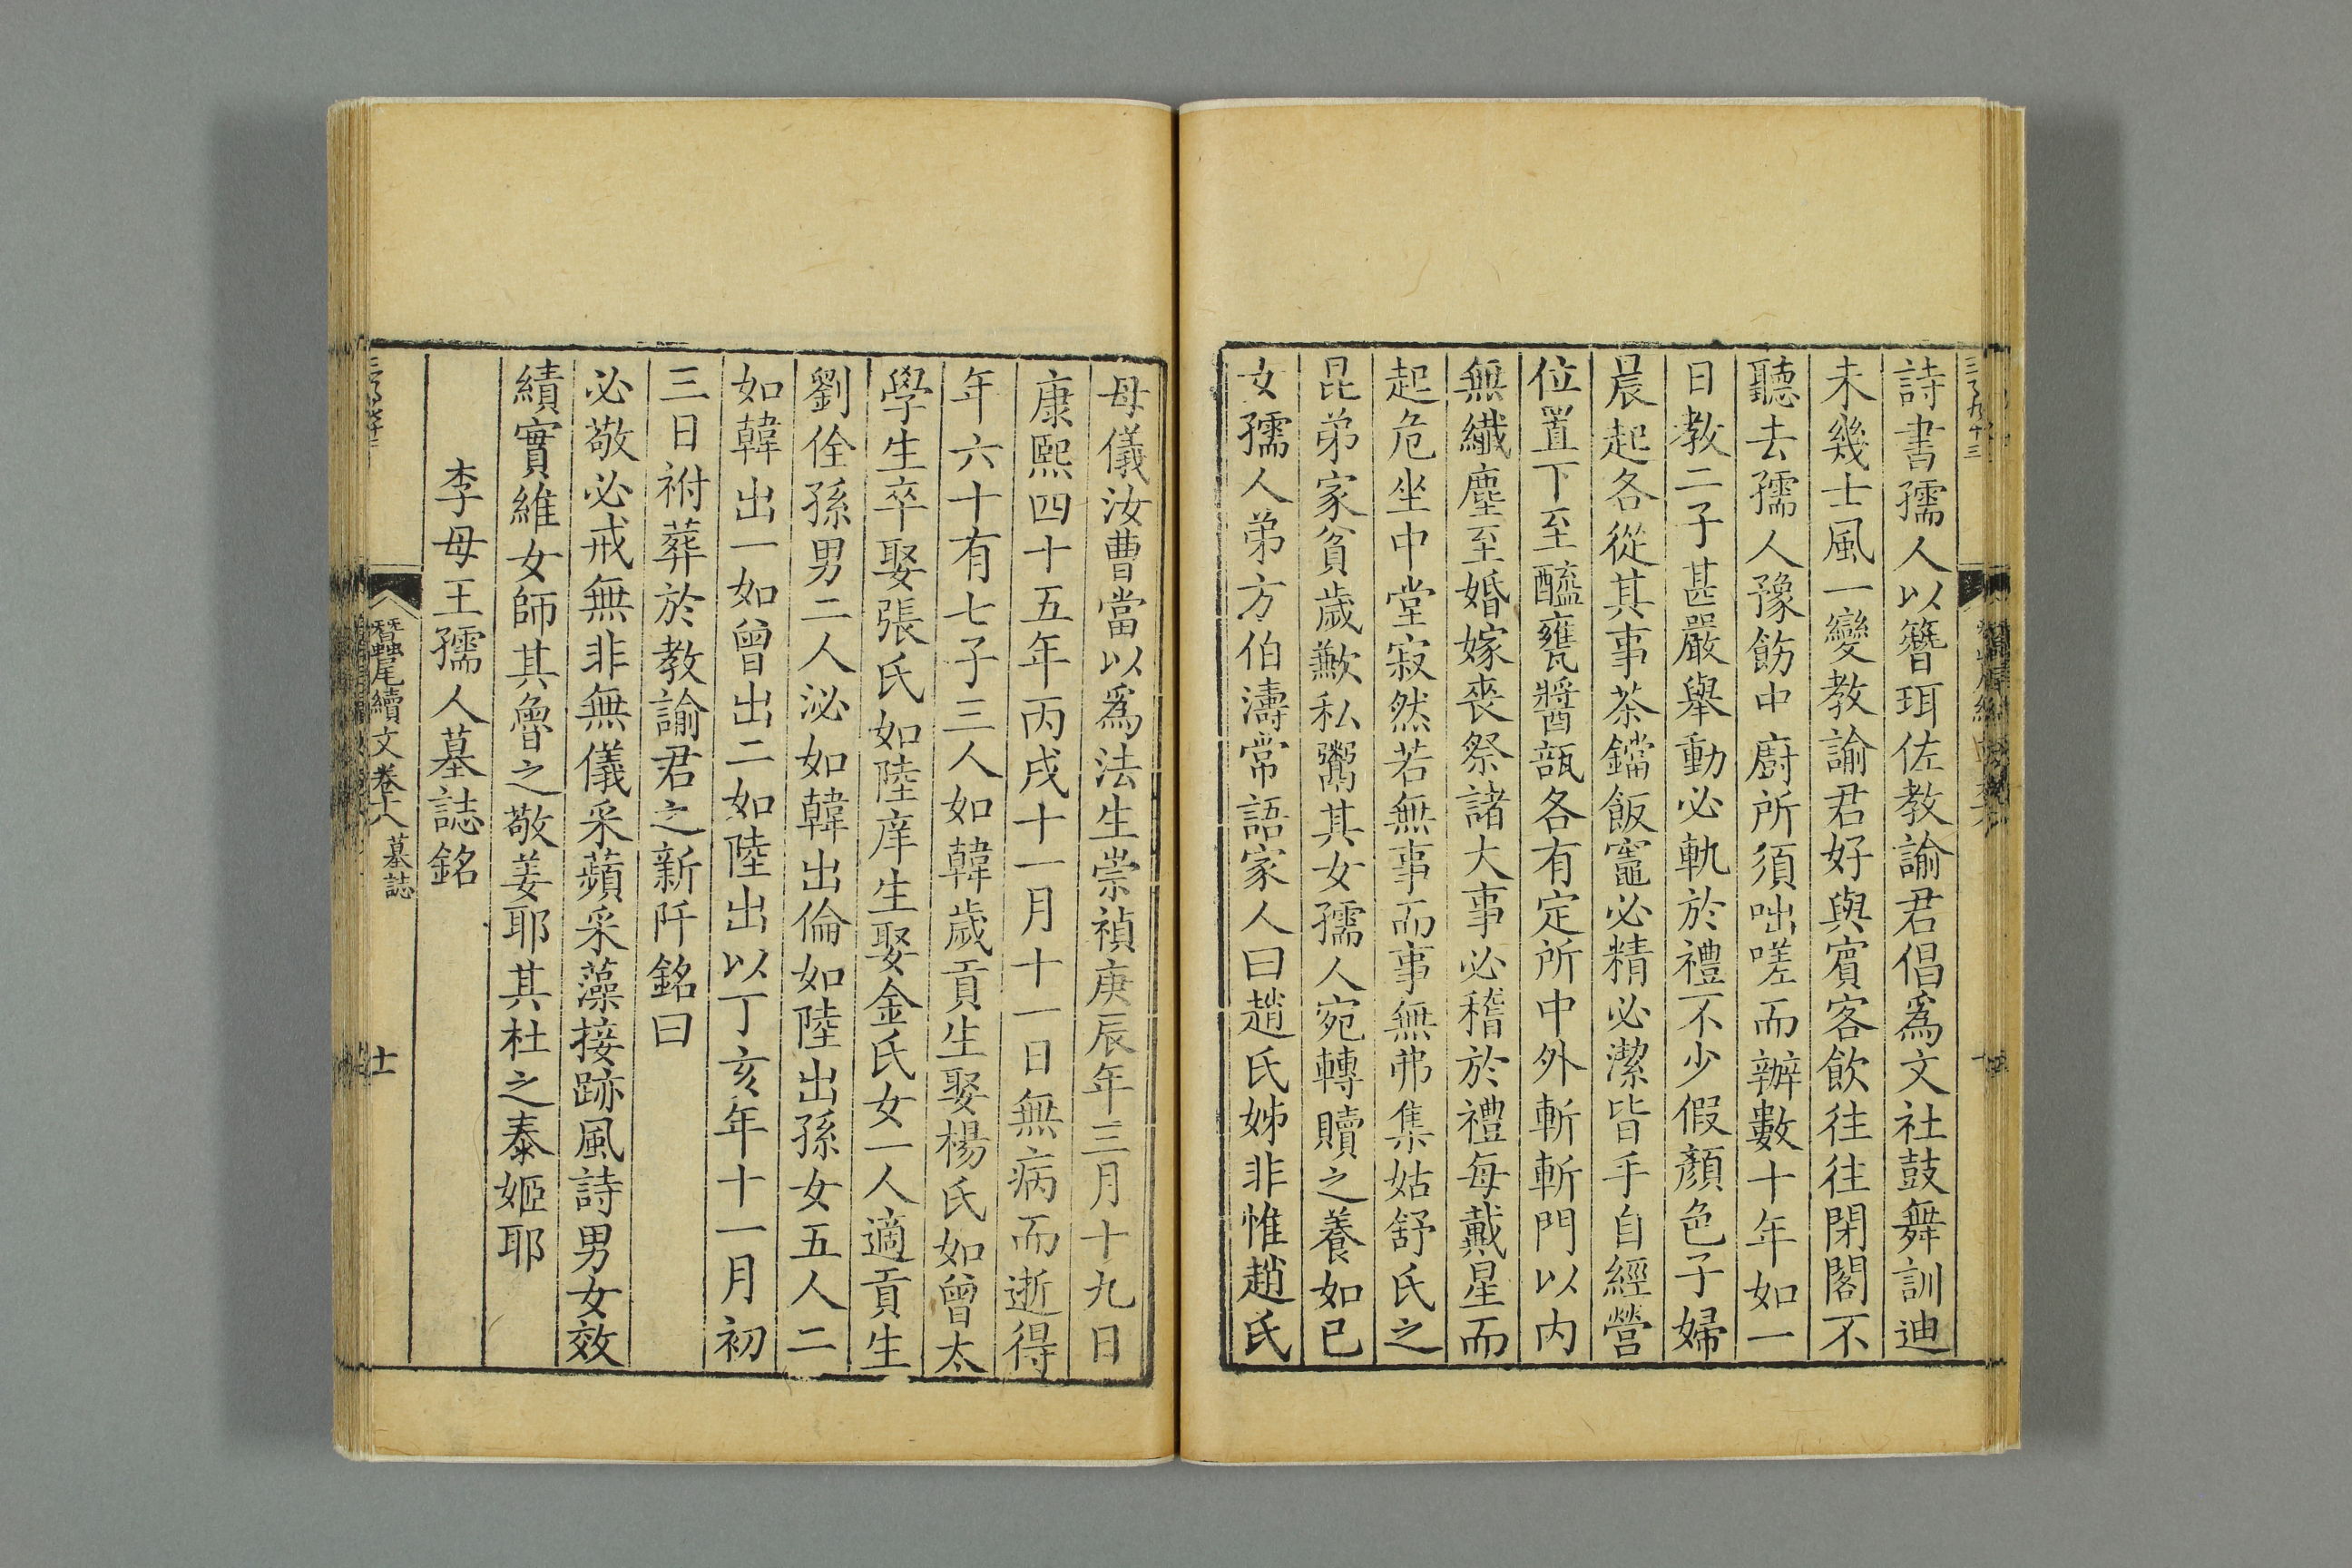 詩書孺人以簪珥佐教諭君倡爲文社鼓舞訓迪
未幾士風一變教諭君好與賓客飲往往閉閣不
聽去孺人豫飭中廚所須咄嗟而辦數十年如一
日教二子甚嚴舉動必軌於禮不少假顏色子婦
晨起各從其事茶鐺飯竈必精必潔皆手自經營
位置下至醯甕醬瓿各有定所中外斬斬門以内
無纖塵至婚嫁喪祭諸大事必稽於禮每戴星而
起危坐中堂寂然若無事而事無弗集姑舒氏之
昆弟家貧歲歉私鬻其女孺人宛轉贖之養如已
女孺人弟方伯濤常語家人曰趙氏姊非惟趙氏
母儀汝曹當以爲法生崇禎庚辰年三月十九日
康熙四十五年丙戌十一月十一日無病而逝得
年六十有七子三人如韓歲貢生娶楊氏如曾太
學生卒娶張氏如陸庠生娶金氏女一人適貢生
劉佺孫男二人泌如韓出倫如陸出孫女五人二
如韓出一如曾出二如陸出以丁亥年十一月初
三日祔葬於教諭君之新阡銘曰
必敬必戒無非無儀采蘋采藻接跡風詩男女效
績實維女師其魯之敬姜耶其杜之泰姬耶
李母王孺人墓誌銘
蠶尾續文卷十八 墓誌
十一